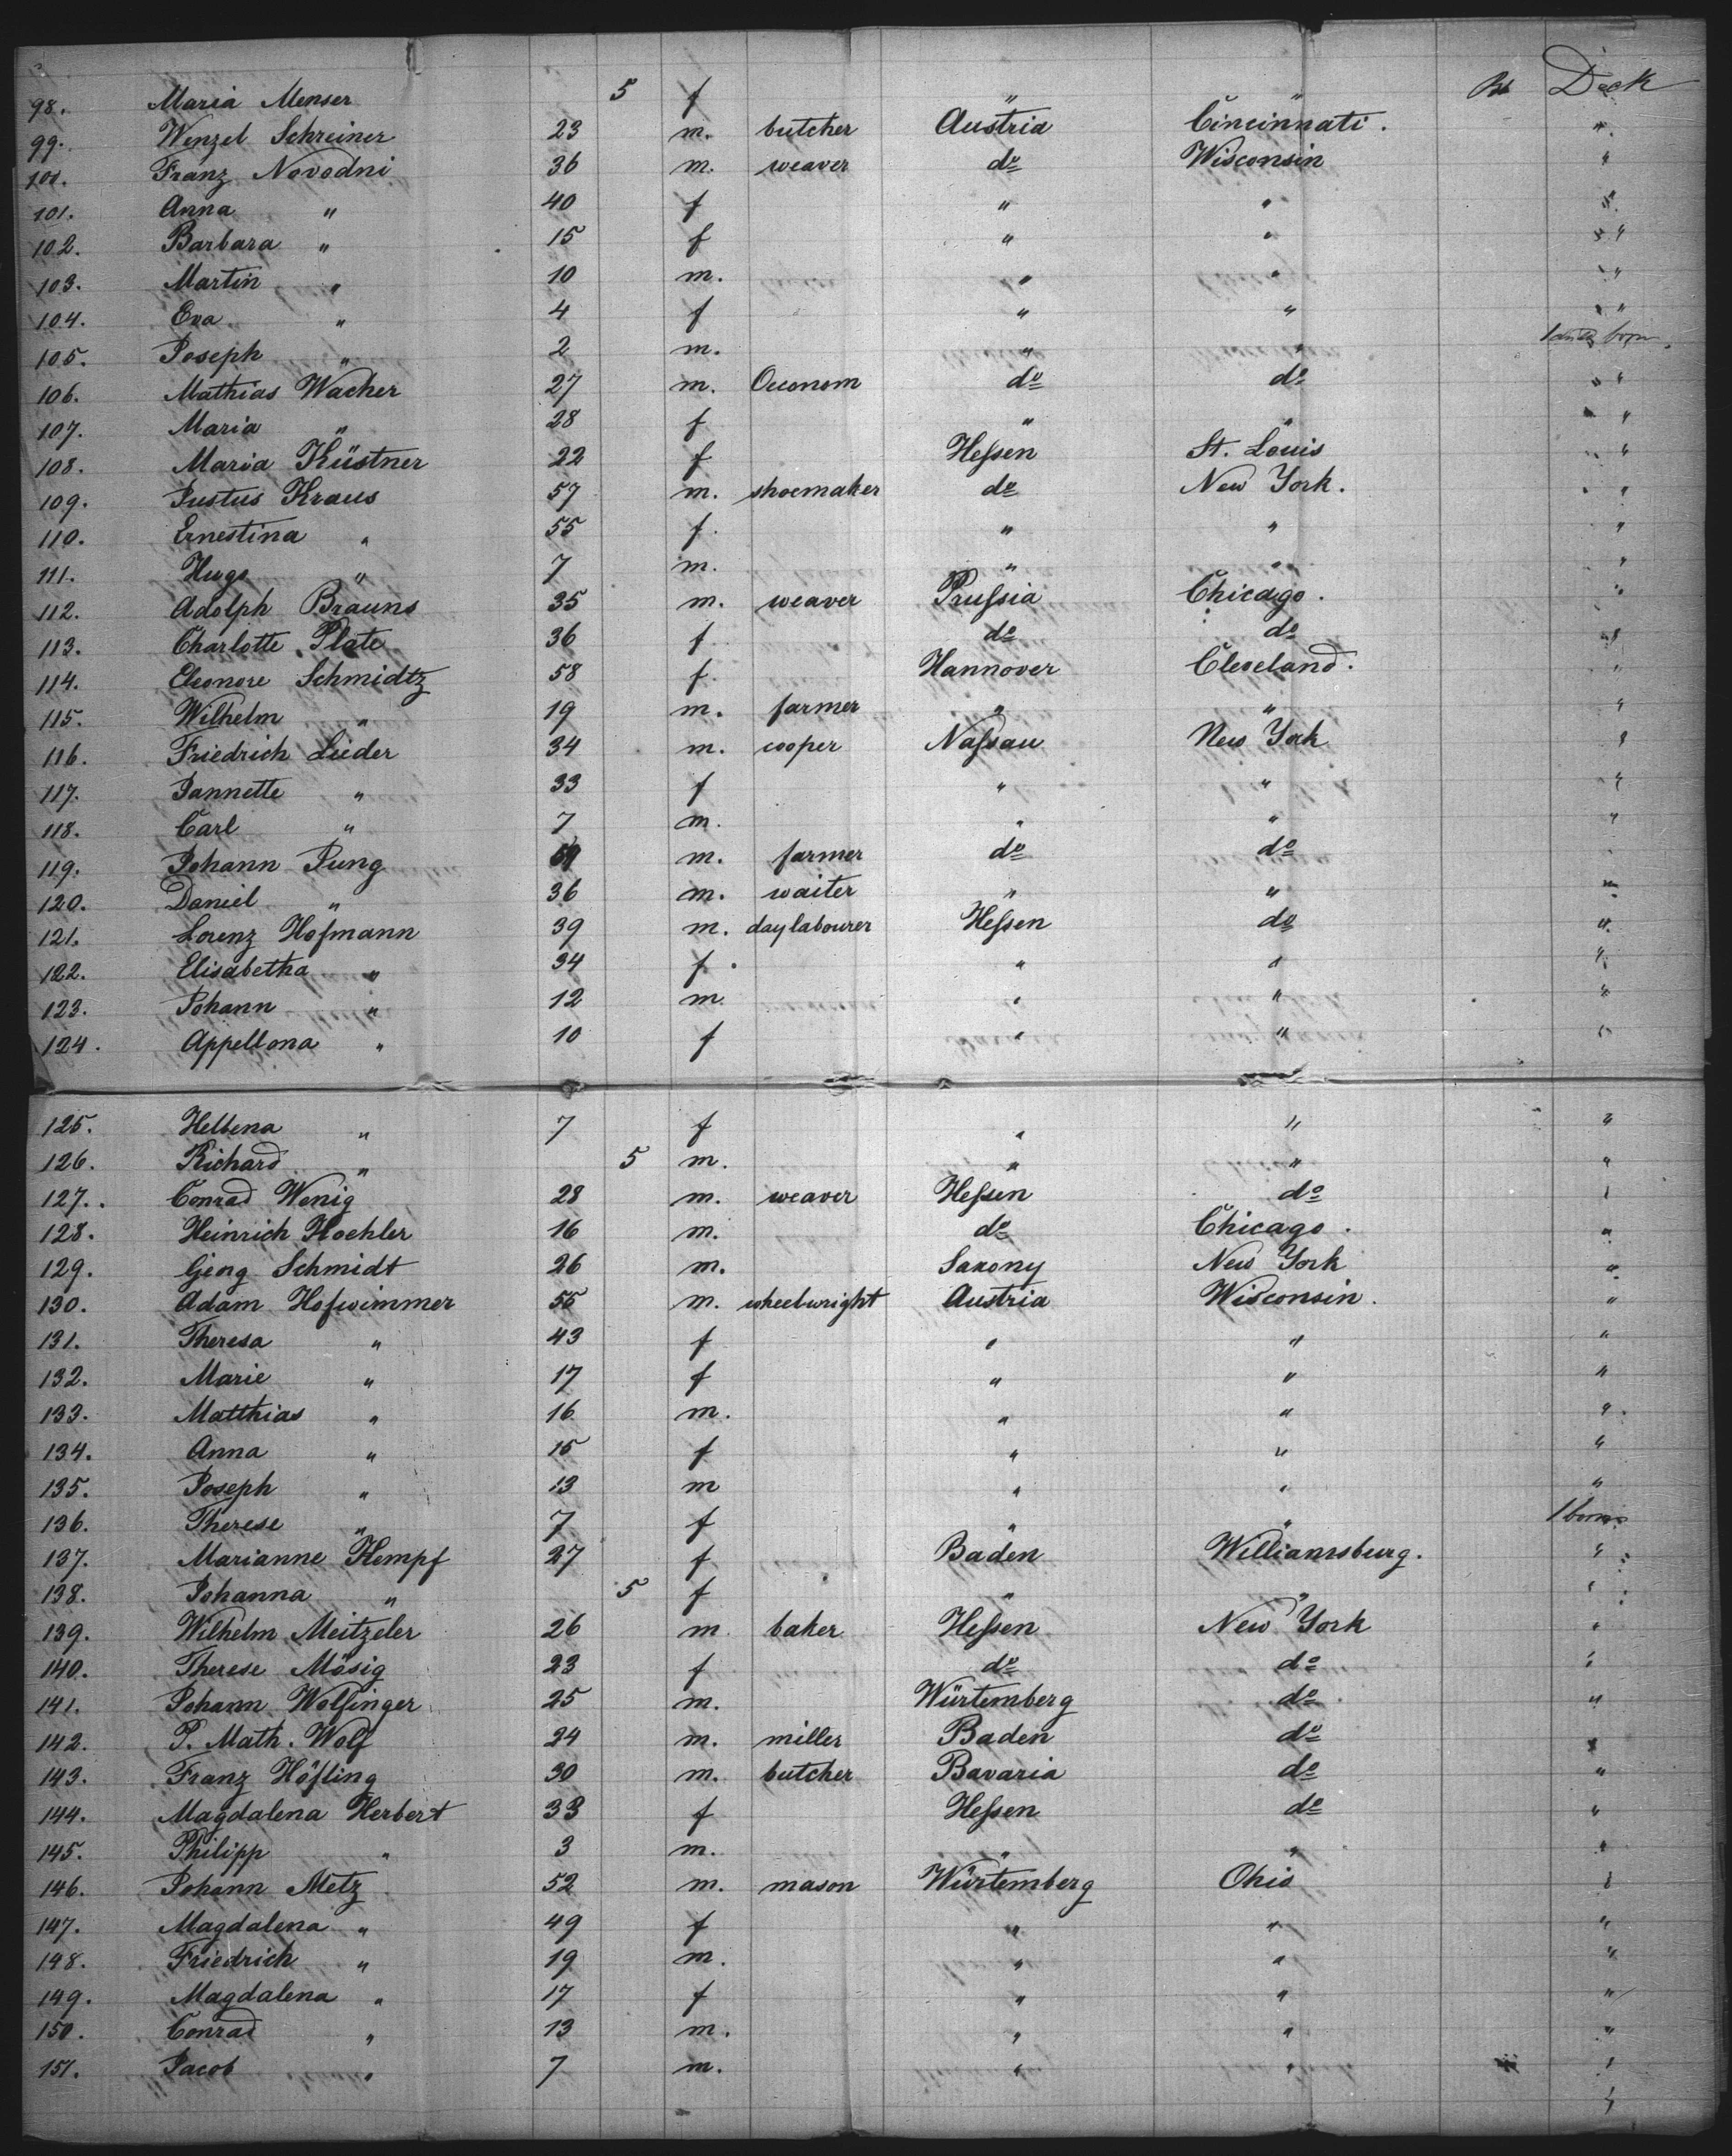 98. Maria Menser 5 f " " Deck
99. Wenzel Schreiner 23 m. butcher Austria Cincinnati. "
101. Franz Novodni 36 m. weaver do Wisconsin "
101. Anna " 40 f " " "
102. Barbara " 15 f " " "
103. Martin " 10 m. " " "
104. Eva " 4 f " " "
105. Joseph " 2 m. " " born
106. Mathias Wacker 27 m. Oeconom do do "
107. Maria " 28 f " " "
108. Maria Küstner 22 f Hessen St. Louis "
109. Justus Kraus 57 m. shoemaker do New York. "
110. Ernestina " 55 f. " " "
111. Hugo " 7 m. " " "
112. Adolph Brauns 35 m. weaver Prussia Chicago. "
113. Charlotte Plate 36 f do do "
114. Eleonore Schmidtz 58 f. Hannover Cleveland. "
115. Wilhelm " 19 m. farmer " " "
116. Friedrich Lieder 34 m. cooper Nassau New York "
117. Jannette " 33 f " " "
118. Carl " 7 m. " " "
119. Johann Jung m. farmer do do
120. Daniel " 36 m. waiter " " "
121. Lorenz Hofmann 39 m. daylabourer Hessen do "
122. Elisabetha " 34 f. " " "
123. Johann " 12 m. " " "
124. Appellona " 10 f " " "
125. Helbena " 7 f " " "
126. Richard " 5 m. " " "
127. Conrad Wenig 28 m. weaver Hessen do "
128. Heinrich Koehler 16 m. do Chicago. "
129. Georg Schmidt 26 m. Saxony New York "
130. Adam Hofwimmer 55 m. wheelwright Austria Wisconsin. "
131. Theresa " 43 f " " "
132. Marie " 17 f " " "
133. Matthias " 16 m. " " "
134. Anna " 15 f " " "
135. Joseph " 13 m " " "
136. Therese " 7 f " " 1 born
137. Marianne Kempf 27 f Baden Williamsburg. "
138. Johanna " 5 f " " "
139. Wilhelm Meitzeler 26 m baker Hessen New York "
140. Therese Mösig 23 f do do "
141. Johann Wolfinger 25 m. Würtemberg do "
142. P. Math. Wolf 24 m. miller Baden do "
143. Franz Höfling 30 m. butcher Bavaria do "
144. Magdalena Herbert 33 f Hessen do "
145. Philipp " 3 m. " " "
146. Johann Metz 52 m. mason Würtemberg Ohio "
147. Magdalena " 49 f " " "
148. Friedrich " 19 m. " " "
149. Magdalena " 17 f " " "
150. Conrad " 13 m. " " "
151. Jacob " 7 m. " " "